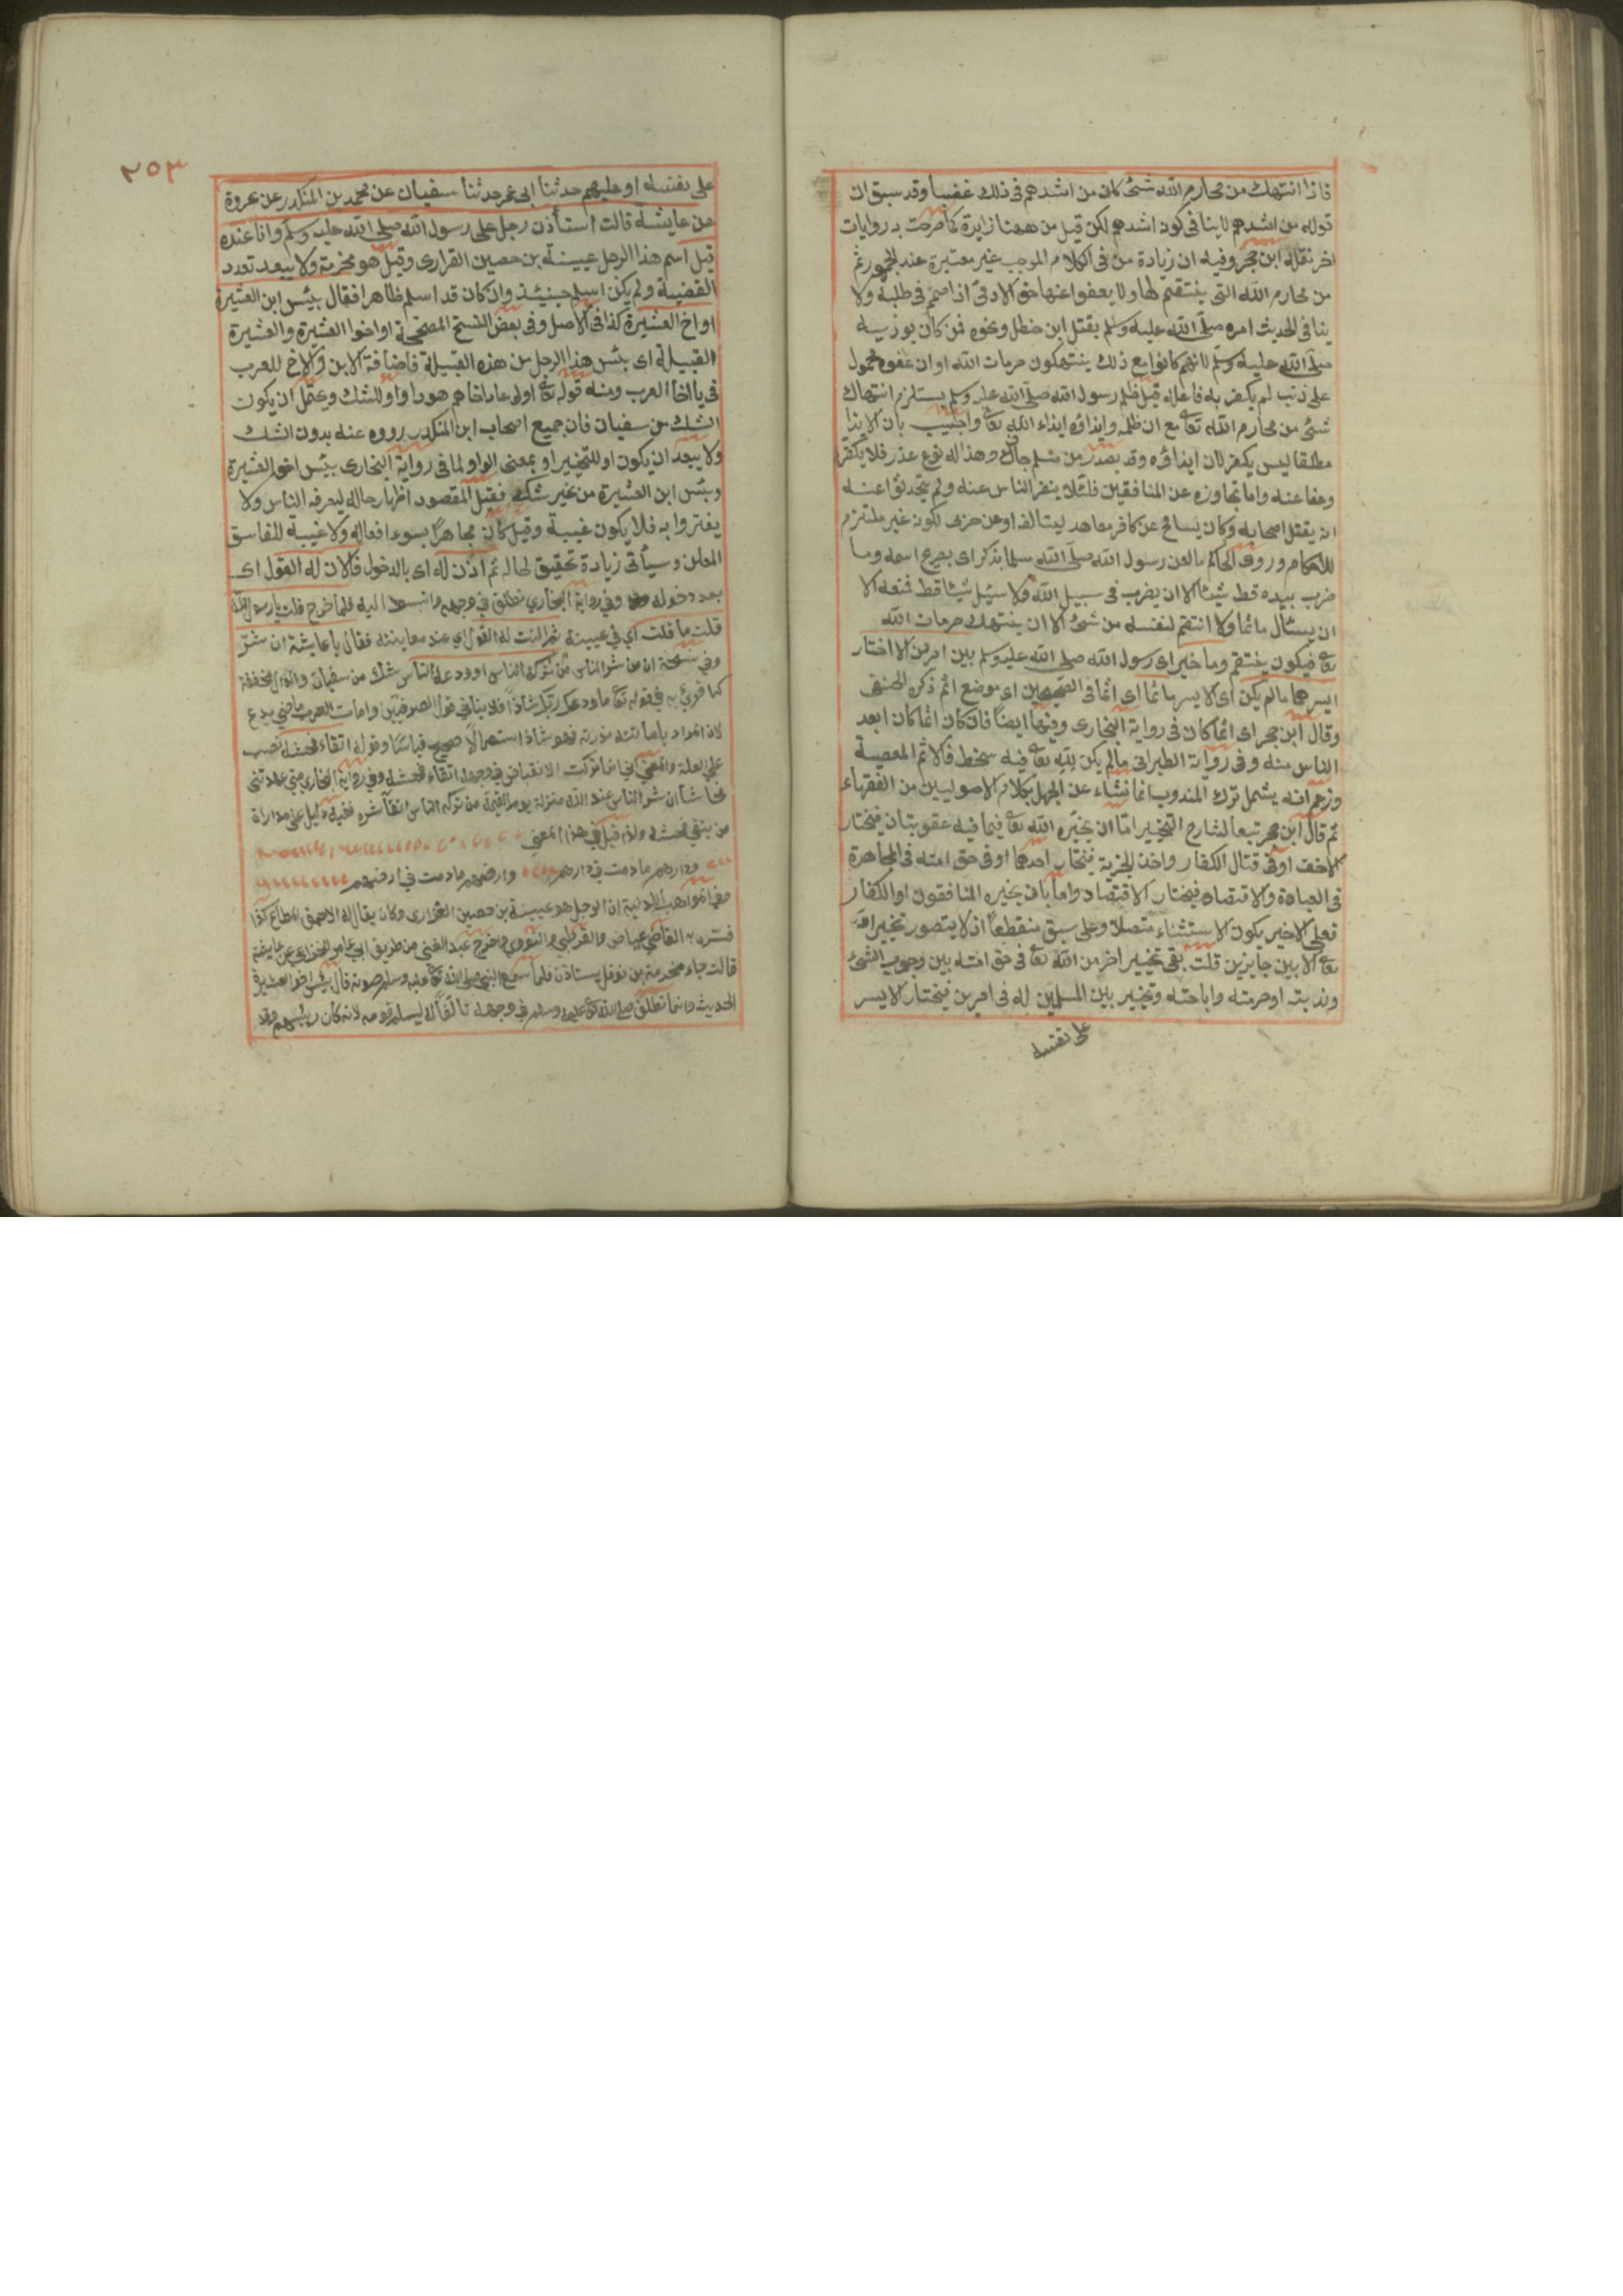 فاذا انتهك من محارم الله شئ كان من اشدهم فى ذلك غضبا وقد سبق ان
قوله من اشدهم لا ينافى كونه اشدهم لكن قيل من ههنا زايدة كما صرحت به روايات
اخر نقله ابن حجر وفيه ان زيادة من فى الكلام الموجب غير معتبرة عند الجمهور ثم
من محارم الله التى ينتقم لها ولا يعفوا عنها حق الادمى اذا صمم فى طلبه ولا
ينافى الحديث امره صلى الله عليه وسلم بقتل ابن خطل ونحوه ممن كان يوذيه
صلى الله عليه وسلم لانهم كانوا مع ذلك ينتهكون حرمات الله او ان عفوه محمول
على ذنب لم يكفر به فاعله قيل ظلم رسول الله صلى الله عليه وسلم يستلزم انتهاك
شئ من محارم الله تعا مع ان ظلمه وايذاؤه ايذاء الله تعا واجيب بان الايذا
مطلقا ليس بكفر لان ايذاؤه وقد يصدر من مسلم جاف وهذا له نوع عذر فلا يكفر
وعفا عنه واما تجاوزه عن المنافقين فلئلا ينفر الناس عنه ولم يتحدثوا عنه
انه يقتل اصحابه وكان يسامح عن كافر معاهد ليتالفه او عن حربى لكونه غير ملتزم
للاحكام وروى الحاكم ما لعن رسول الله صلى الله مسلما بذكر اى بصريح اسمه وما
ضرب بيده قط شيئا الا ان يضرب فى سبيل الله ولا سئل شيئا قط فمنعه الا
ان يسئال ماثما ولا انتقم لنفسه من شئ الا ان ينتهك حرمات الله
تعا فيكون ينتقم وما خير اى رسول الله صلى الله عليه وسلم بين امرين الا اختار
ايسرهما ما لم يكن اى الايسر ماثما اى اثما فى الصحيحين اى موضع اثم ذكره الحنفى
وقال ابن حجر اى اثما كان فى رواية البخارى وفيها ايضا فان كان اثما كان ابعد
الناس منه وفى رواية الطبرانى ما لم يكن لله تعا فيه سخط فالاثم المعصية
وزعم انه يشمل ترك المندوب انما نشاء عن الجهل بكلام الاصوليين من الفقهاء
ثم قال ابن حجر تبعا لشارح التخيير اما ان يخيره الله تعا فيما فيه عقوبتان فيختار
الاخف او فى قتال الكفار واخذ الجزية فيختار احدهما او فى حق امته فى المجاهدة
فى العبادة والاقتصاد فيختار الاقتصاد واما بان يخيره المنافقون او الكفار
فعلى الاخير يكون الاستثناء متصلا وعلى سبق منقطعا اذ لا يتصور تخيير الله
تعا الا بين جايزين قلت بقى تخيير اخر من الله تعا فى حق امته بين وجوب الشئ
وندبته او حرمته واباحته وتخيير بين المسلمين له فى امرين فيختار الايسر
على نفسه
٢٥٣
على نفسه او عليهم حدثنا ابى عمر حدثنا سفيان عن محمد بن المنكدر عن عروة
عن عايشة قالت استأذن رجل على رسول الله صلى الله عليه وسلم وانا عنده
قيل اسم هذا الرجل عيينة بن حصين الفزارى وقيل هو مخرمة ولا يبعد تعدد
القضية ولم يكن اسلم حينئذ وان كان قد اسلم ظاهرا فقال بئس ابن العشيرة
او اخ العشيرة كذا فى الاصل وفى بعض النسخ المصححة او اخوا العشيرة والعشيرة
القبيلة اى بئس هذا الرجل من هذه القبيلة فاضافة الابن والاخ للعرب
فى يا اخا العرب ومنه قوله تعا اولى عاد اخاهم هودا واو للشك ويحتمل ان يكون
الشك من سفيان فان جميع اصحاب ابن المنكدر رووه عنه بدون الشك
ولا يبعد ان يكون او للتخيير او بمعنى الواو لما فى رواية البخارى بئس اخو العشيرة
وبئس ابن العشيرة من غير شك فقيل المقصود اظهار حاله ليعرفه الناس ولا
يغتروا به فلا يكون غيبة وقيل كان مجاهرا بسوء افعاله ولا غيبة للفاسق
المعلن وسيأتى زيادة تحقيق لحاله ثم اذن له اى بالدخول فالان له القول اى
بعد دخوله وفي رواية البخاري تطلق في وجهه وانبسط اليه فلما خرج قلت يا رسول الله
قلت ما قلت اي في عيينة ثم النت له القول اي عند معاينته فقال يا عايشة ان شر
وفي نسخة ان من شر الناس من تركه الناس او ودعه الناس شك من سفيان والدال مخففة
كما قرئ به في قوله تعا ما ودعك ربك شاذا فلا ينافي قول الصرفيين واماتت العرب ماضي يدع
لان المراد باماتته ندرته فهو شاذ استعمالا صحيح قياسا وقوله اتقاء فحشه نصب
على العلة والمعنى اني انما تركت الانقباض في وجهه اتقاء فحشه وفي رواية البخاري متى عهدتني
فحاشا ان شر الناس عند الله منزلة يوم القيمة من تركه الناس اتقاء شره ففيه دليل على مداراة
من يتقي فحشه ولذا قيل في هذا المعنى
ودارهم ما دمت في دارهم وارضهم ما دمت في ارضهم
ففي المواهب اللدنية ان الرجل هو عيينة بن حصين الفزارى وكان يقال له الاحمق المطاع كذا
فسره به القاضي عياض والقرطبي والنووي واخرج عبد الغنى من طريق ابي عامر الخزاعي عن عايشة
قالت جاء مخرمة بن نوفل يستاذن فلما سمع النبي صلى الله تعا عليه وسلم صوته قال بئس اخو العشيرة
الحديث وانما تطلق صلى الله تعا عليه وسلم في وجهه تالفا له ليسلم قومه لانه كان رئيسهم وقد